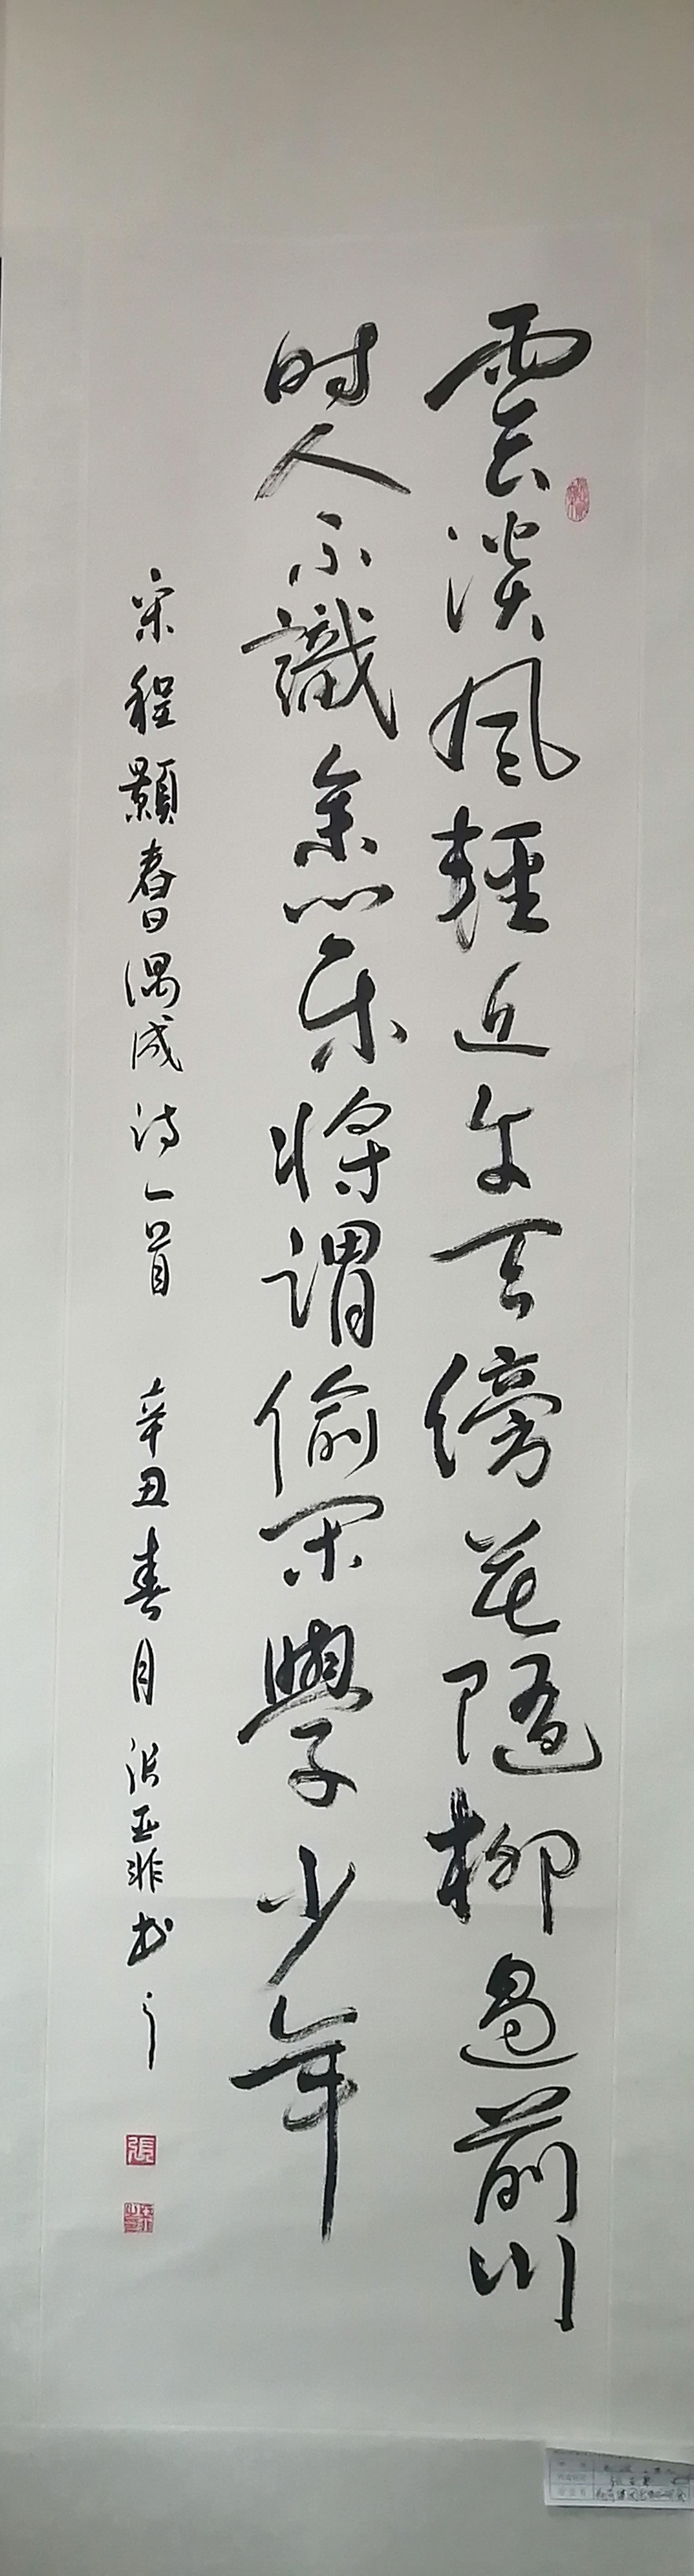 雲淡風輕近午天傍花隨柳過前川
时人不識余心樂將謂偷闲學少年
宋程顥春日偶成诗一首 辛丑春月 张亚非书
張